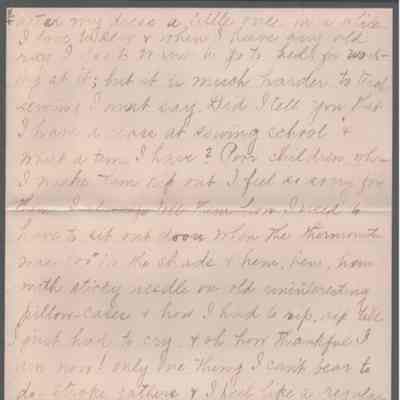 my dress a little once in a while
I love to sew & when I have any old
to go to bed for work-
ing at it; but it is much harder to teach
sewing I must say. Did I tell you that
I have a class at sewing school &
what a time I have? Poor children, when
I make them rip out I feel so sorry for
them. I always tell them how I used to
have to sit out doors when the thermometer
was 100° in the shade & hem, hem, hem
with sticky needle on old uninteresting
pillow-cases & how I had to rip, rip till
I just had to cry & oh how thankful I
am now! only one thing I can't bear to
do - stroke gathers & I feel like a regular